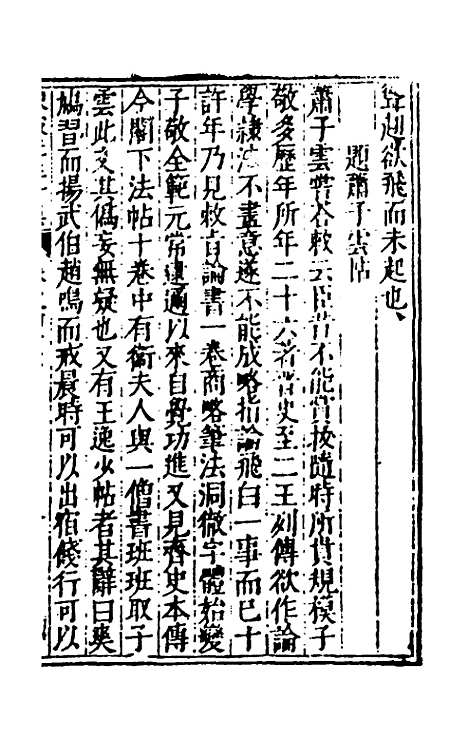 翥趙欲飛而未起也、
題蕭子雲帖
蕭子雲嘗答敕云臣昔不能賞拔隨時所貴規模子
敬多歷年所年二十六著晉史至二王列傳欲作論
學隸法不盡意遂不能成略指論飛白一事而已十
許年乃見敕旨論書一卷商略筆法洞微字體始變
子敬全範元常逮邇以來自覺功進又見齊史本傳
今閣下法帖十卷中有衛夫人與一僧書班班取子
雲此文其僞妄無疑也又有王逸少帖者其辭曰爽
鳩習而揚武伯趙鳴而戒晨時可以出宿餞行可以